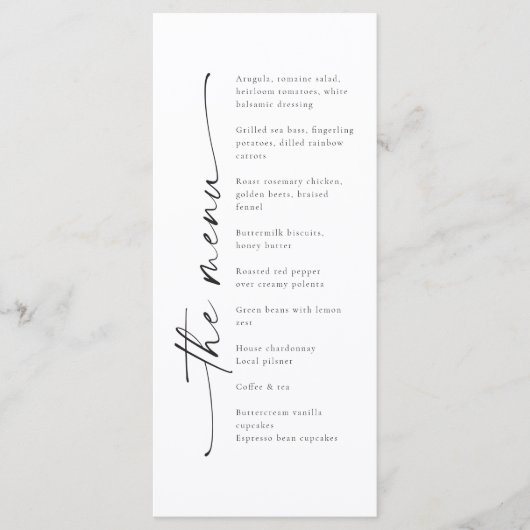 the menu
Arugula, romaine salad,
heirloom tomatoes, white
balsamic dressing
Grilled sea bass, fingerling
potatoes, dilled rainbow
carrots
Roast rosemary chicken,
golden beets, braised
fennel
Buttermilk biscuits,
honey butter
Roasted red pepper
over creamy polenta
Green beans with lemon
zest
House chardonnay
Local pilsner
Coffee & tea
Buttercream vanilla
cupcakes
Espresso bean cupcakes